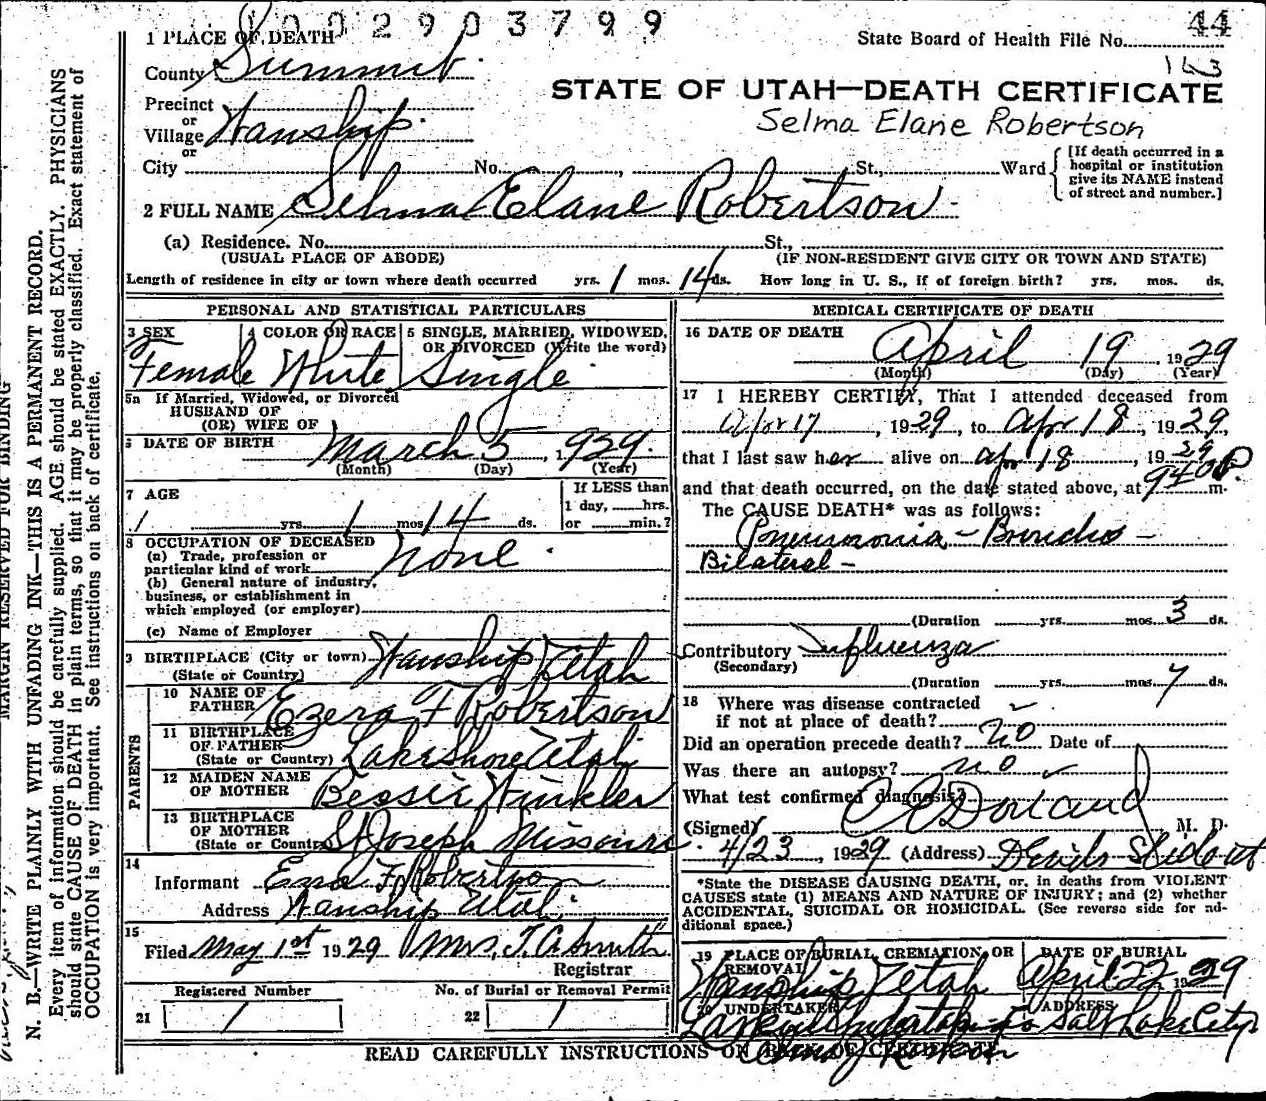 1002903799
44
1 PLACE OF DEATH
State Board of Health File No.
163
County Summit
STATE OF UTAH—DEATH CERTIFICATE
Precinct
or
Village Wanship
Selma Elane Robertson
or
City No. , St., Ward
[If death occurred in a
hospital or institution
give its NAME instead
of street and number.]
2 FULL NAME Selma Elane Robertson
(a) Residence. No. St.,
(USUAL PLACE OF ABODE) (IF NON-RESIDENT GIVE CITY OR TOWN AND STATE)
Length of residence in city or town where death occurred yrs. 1 mos. 14 ds. How long in U. S., if of foreign birth? yrs. mos. ds.
PERSONAL AND STATISTICAL PARTICULARS
3 SEX 4 COLOR OR RACE 5 SINGLE, MARRIED, WIDOWED,
OR DIVORCED (Write the word)
Female White Single
5a If Married, Widowed, or Divorced
HUSBAND OF
(OR) WIFE OF
6 DATE OF BIRTH March 5, 1929.
(Month) (Day) (Year)
7 AGE
If LESS than
1 day, hrs.
or min.?
yrs. 1 mos 14 ds.
8 OCCUPATION OF DECEASED
(a) Trade, profession or
particular kind of work none
(b) General nature of industry,
business, or establishment in
which employed (or employer)
(c) Name of Employer
9 BIRTHPLACE (City or town) Wanship Utah
(State or Country)
PARENTS
10 NAME OF
FATHER Ezera F Robertson
11 BIRTHPLACE
OF FATHER
(State or Country) Lake Shore Utah
12 MAIDEN NAME
OF MOTHER Bessie Winkler
13 BIRTHPLACE
OF MOTHER
(State or Country) St Joseph Missouri
14
Informant F. Robertson
Address Wanship Utah
15
Filed May 1st 1929 Mrs. T. A. Smith
Registrar
Registered Number No. of Burial or Removal Permit
21 1 22 1
MEDICAL CERTIFICATE OF DEATH
16 DATE OF DEATH
April 19, 1929
(Month) (Day) (Year)
17 I HEREBY CERTIFY, That I attended deceased from
Apr 17, 1929, to Apr 18, 1929,
that I last saw her alive on Apr 18, 1929
and that death occurred, on the date stated above, at 940 P m.
The CAUSE DEATH* was as follows:
Pneumonia - Broncho -
Bilateral -
(Duration yrs. mos. 3 ds.
Contributory Influenza
(Secondary)
(Duration yrs. mos 7 ds.
18 Where was disease contracted
if not at place of death?
Did an operation precede death? no Date of
Was there an autopsy? no
What test confirmed diagnosis?
(Signed) M. D.
4/23, 1929 (Address) Devils Slide ut
*State the DISEASE CAUSING DEATH, or, in deaths from VIOLENT
CAUSES state (1) MEANS AND NATURE OF INJURY; and (2) whether
ACCIDENTAL, SUICIDAL OR HOMICIDAL. (See reverse side for ad-
ditional space.)
19 PLACE OF BURIAL, CREMATION, OR
REMOVAL
DATE OF BURIAL
Wanship Utah April 22 1929
20 UNDERTAKER ADDRESS
Salt Lake City
READ CAREFULLY INSTRUCTIONS ON BACK OF CERTIFICATE
MARGIN RESERVED FOR BINDING
N. B.—WRITE PLAINLY WITH UNFADING INK—THIS IS A PERMANENT RECORD.
Every item of information should be carefully supplied. AGE should be stated EXACTLY. PHYSICIANS
should state CAUSE OF DEATH in plain terms, so that it may be properly classified. Exact statement of
OCCUPATION is very important. See instructions on back of certificate.